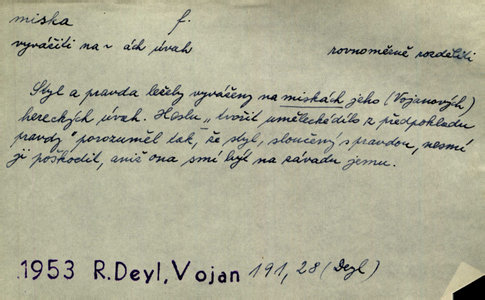 miska f.
vyvážiti na ~ ách úvah rovnoměrně rozděliti
Styl a pravda ležely vyváženy na miskách jeho (Vojanových)
hereckých úvah. Heslu „tvořit umělecké dílo z předpokladu
pravdy" porozuměl tak, že styl, sloučený s pravdou, nesmí
ji poškodit, aniž ona smí být na závadu jemu.
1953 R. Deyl, Vojan 191, 28 (Deyl)